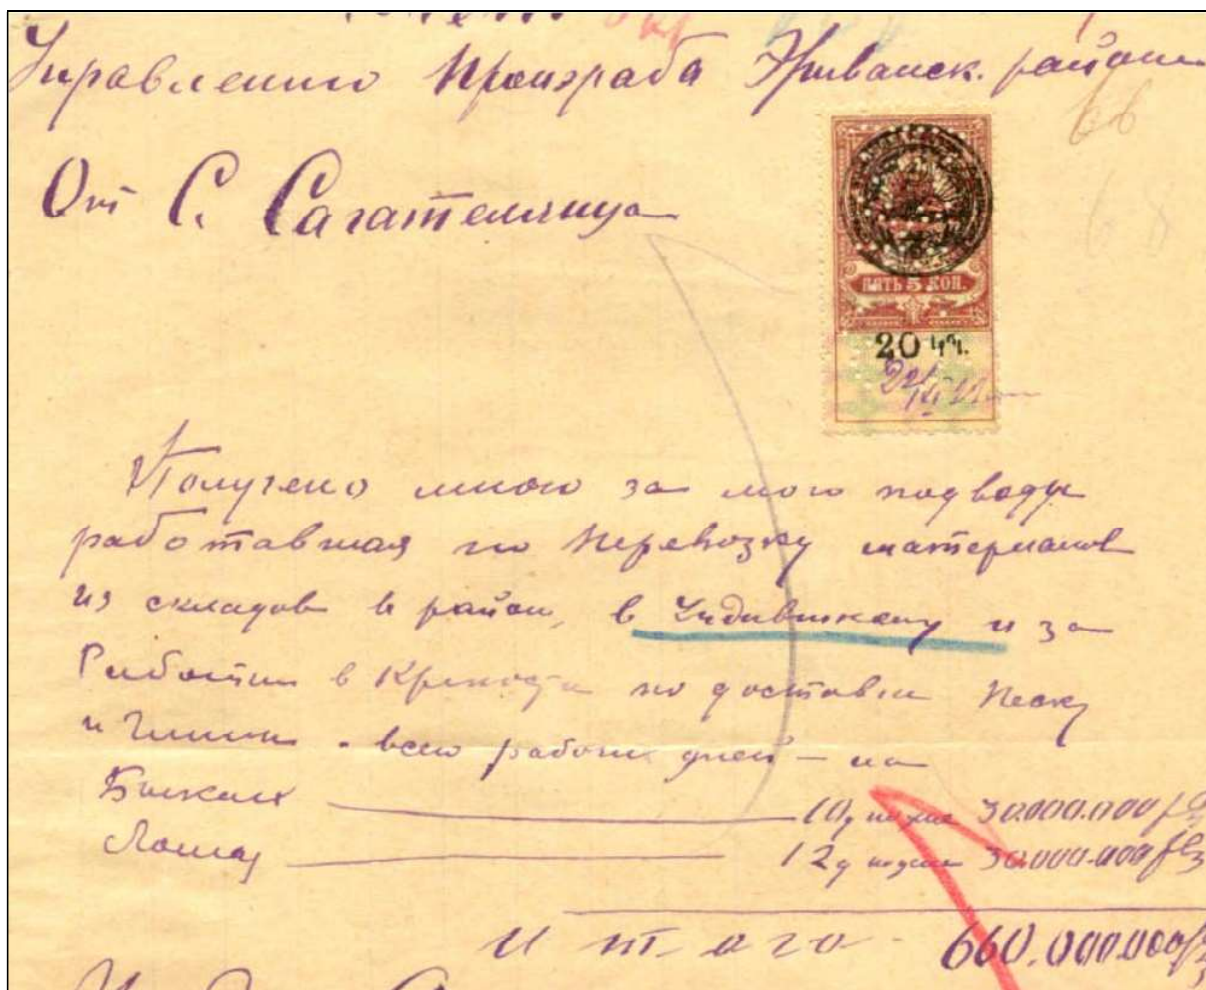 Управлению Произраба Эриванск. района
От С. Сагателянца
ПЯТЬ 5 КОП.
20
Получено мною за мою подводу
работавшая по перевозку материалов
из складов в район, в и за
Работы в Крепости по доставки песку
и Глины - всего рабочих дней - на
Быках 10 30.000.000
Лошад 12 30.000.000
Итого - 660.000.000